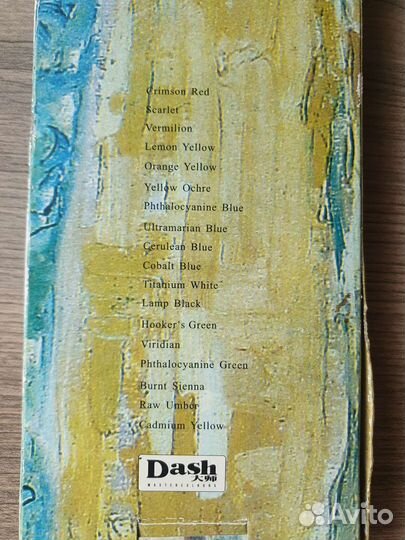 Crimson Red
Scarlet
Vermilion
Lemon Yellow
Orange Yellow
Yellow Ochre
Phthalocyanine Blue
Ultramarian Blue
Cerulean Blue
Cobalt Blue
Titanium White
Lamp Black
Hooker's Green
Viridian
Phthalocyanine Green
Burnt Sienna
Raw Umber
Cadmium Yellow
Dash
大师
Avito